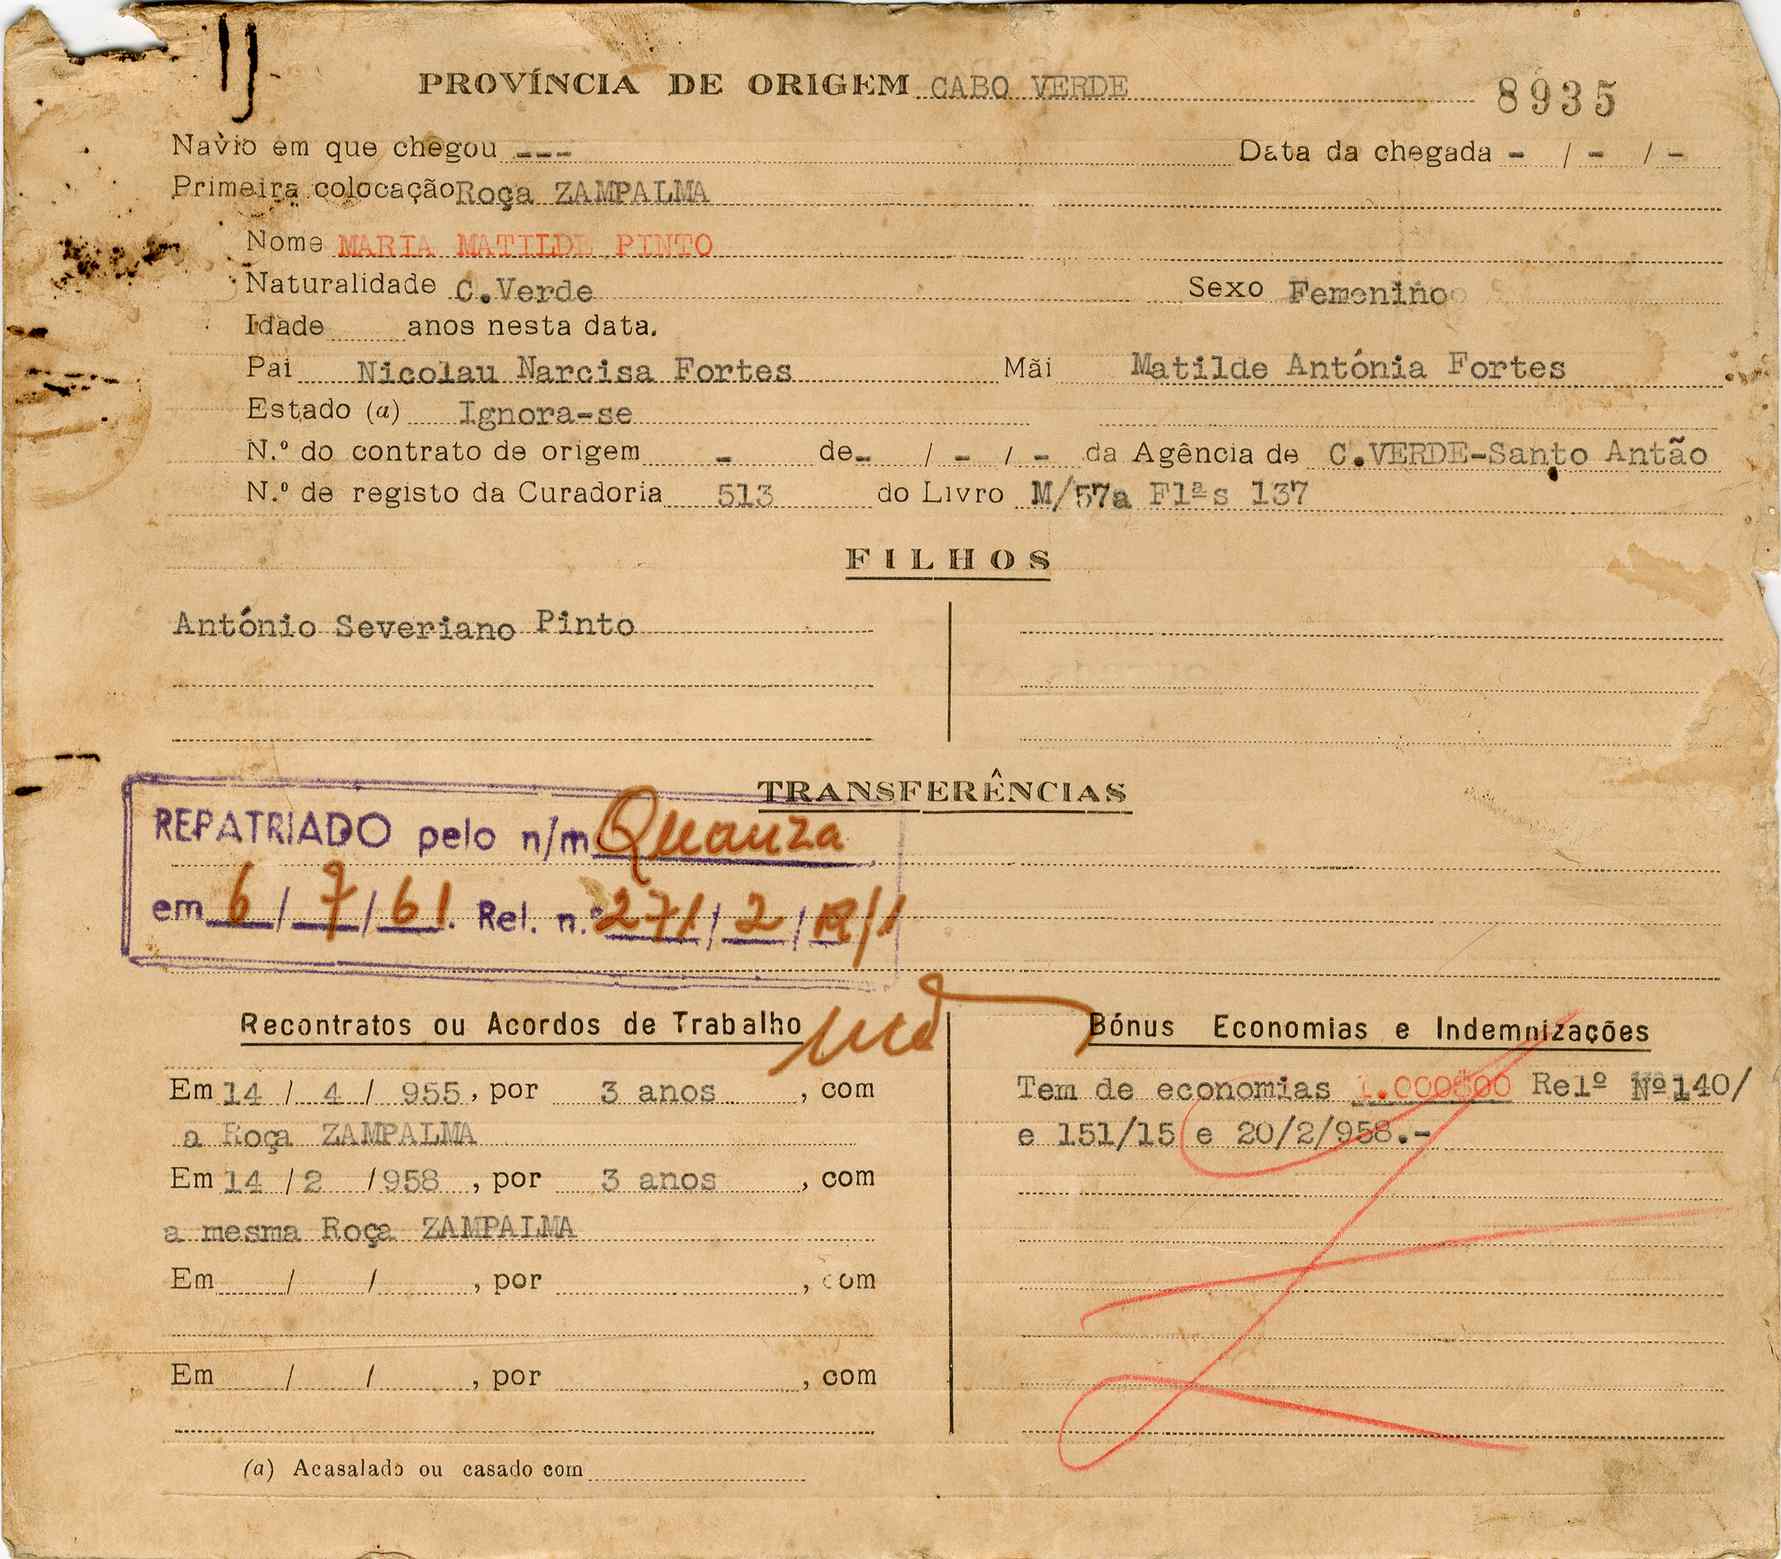 PROVÍNCIA DE ORIGEM CABO VERDE 8935
Navio em que chegou --- Data da chegada - / - / -
Primeira colocação Roça ZAMPALMA
Nome MARIA MATILDE PINTO
Naturalidade C.Verde Sexo Femenino
Idade anos nesta data.
Pai Nicolau Narcisa Fortes Mãi Matilde Antónia Fortes
Estado (a) Ignora-se
N.º do contrato de origem - de- / - / - da Agência de C.VERDE-Santo Antão
N.º de registo da Curadoria 513 do Livro M/57a Flªs 137
FILHOS
António Severiano Pinto
TRANSFERÊNCIAS
REPATRIADO pelo n/m Quanza
em 6/7/61. Rel. n.º 271/2/R/1
Recontratos ou Acordos de Trabalho
Em 14 / 4 / 955, por 3 anos, com
a Roça ZAMPALMA
Em 14 / 2 / 958, por 3 anos, com
a mesma Roça ZAMPALMA
Em / / , por , com
Em / / , por , com
(a) Acasalado ou casado com
Bónus Economias e Indemnizações
Tem de economias 1.000$00 Relº Nº140/
e 151/15 e 20/2/958.-